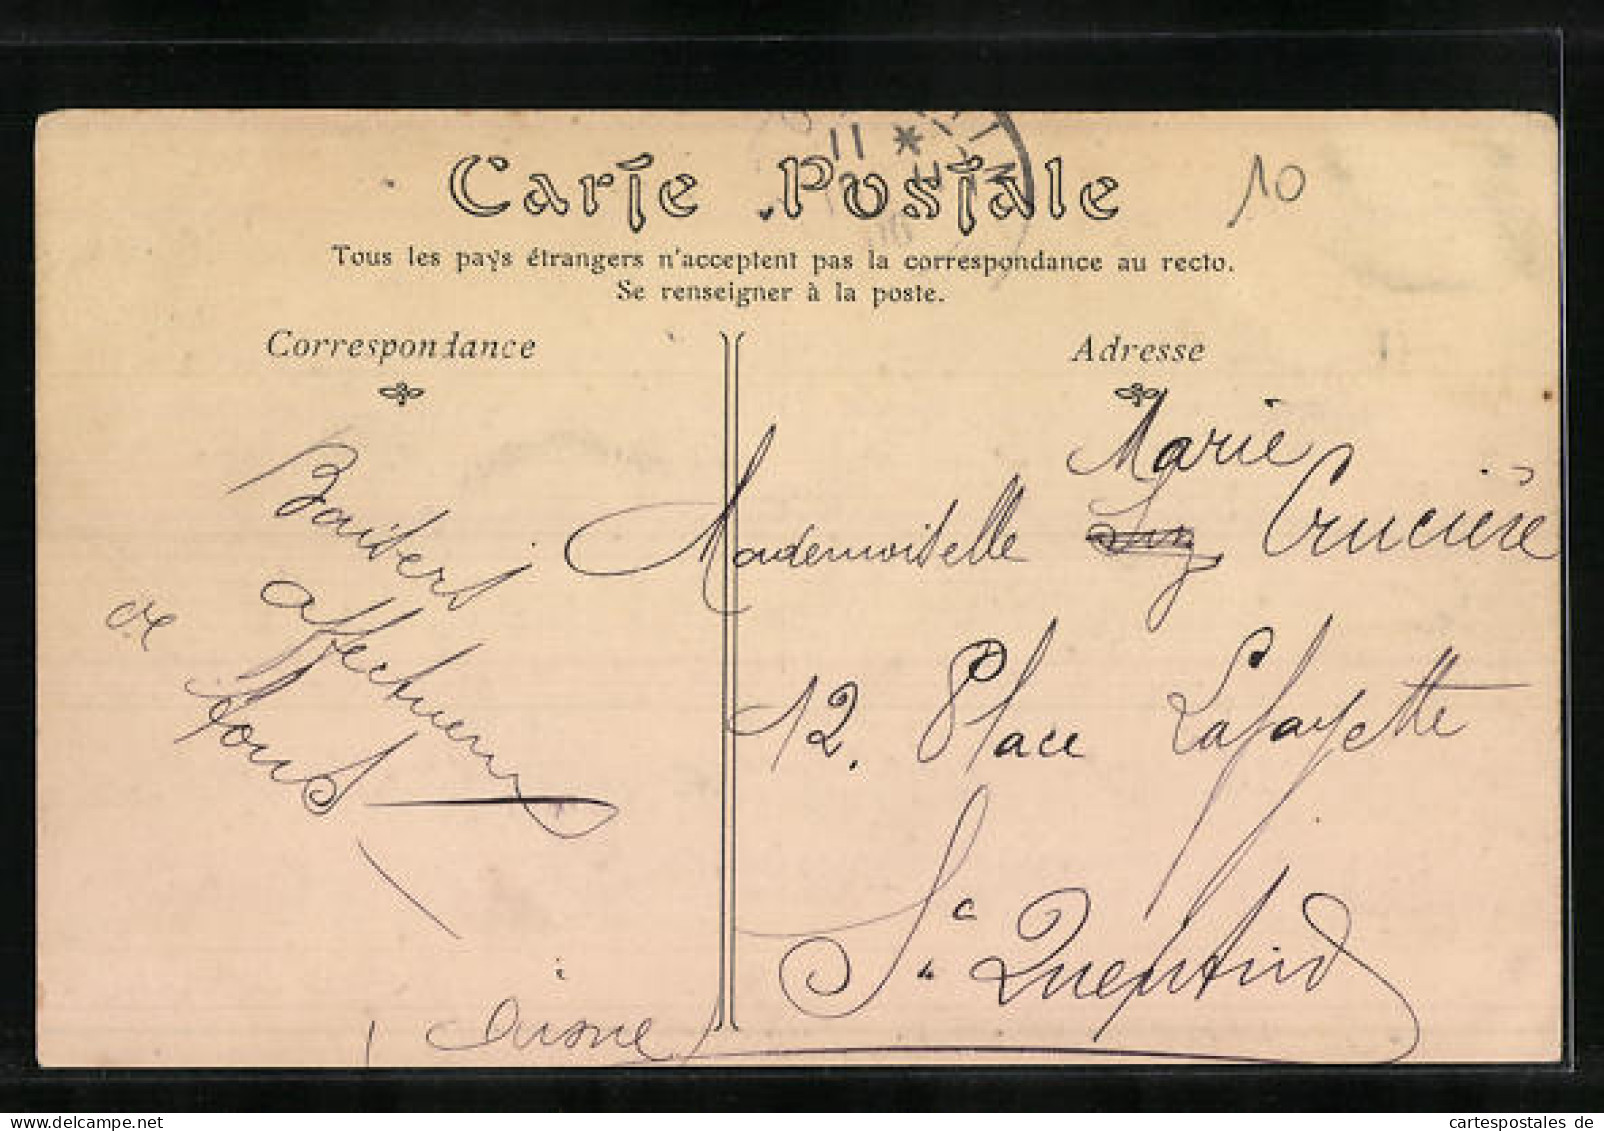 Carte Postale
10
Tous les pays étrangers n'acceptent pas la correspondance au recto.
Se renseigner à la poste.
Correspondance
Baisers
affectueux
de
tous
Adresse
Marie
Mademoiselle Crucière
12. Place Lafayette
St Quentin
Aisne
www.cartespostales-ak.net
cartespostales de